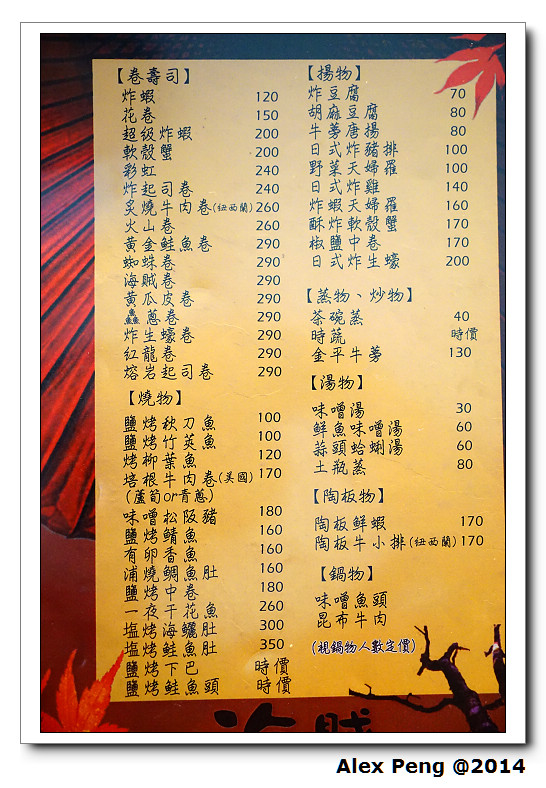 【卷壽司】
炸蝦 120
花卷 150
超级炸蝦 200
軟殼蟹 200
彩虹 240
炸起司卷 240
炙燒牛肉卷(紐西蘭) 260
火山卷 260
黃金鮭魚卷 290
蜘蛛卷 290
海賊卷 290
黃瓜皮卷 290
鱻蔥卷 290
炸生蠔卷 290
紅龍卷 290
熔岩起司卷 290
【燒物】
鹽烤秋刀魚 100
鹽烤竹莢魚 100
烤柳葉魚 120
培根牛肉卷(美國) 170
(蘆筍or青蔥)
味噌松阪豬 180
鹽烤鯖魚 160
有卵香魚 160
浦燒鯛魚肚 160
鹽烤中卷 180
一夜干花魚 260
塩烤海鱺肚 300
塩烤鮭魚肚 350
鹽烤下巴 時價
鹽烤鮭魚頭 時價
【揚物】
炸豆腐 70
胡麻豆腐 80
牛蒡唐揚 80
日式炸豬排 100
野菜天婦羅 100
日式炸雞 140
炸蝦天婦羅 160
酥炸軟殼蟹 170
椒鹽中卷 170
日式炸生蠔 200
【蒸物、炒物】
茶碗蒸 40
時蔬 時價
金平牛蒡 130
【湯物】
味噌湯 30
鮮魚味噌湯 60
蒜頭蛤蜊湯 60
土瓶蒸 80
【陶板物】
陶板鮮蝦 170
陶板牛小排(紐西蘭) 170
【鍋物】
味噌魚頭
昆布牛肉
(視鍋物人數定價)
Alex Peng @2014